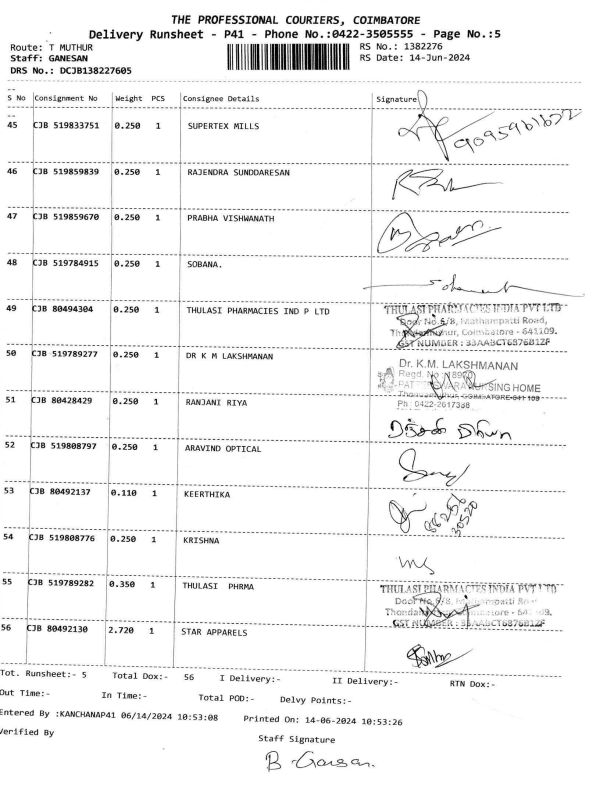 THE PROFESSIONAL COURIERS, COIMBATORE
Delivery Runsheet - P41 - Phone No.:0422-3505555 - Page No.:5
Route: T MUTHUR RS No.: 1382276
Staff: GANESAN RS Date: 14-Jun-2024
DRS No.: DCJB138227605
S No Consignment No Weight PCS Consignee Details Signature
45 CJB 519833751 0.250 1 SUPERTEX MILLS
46 CJB 519859839 0.250 1 RAJENDRA SUNDDARESAN
47 CJB 519859670 0.250 1 PRABHA VISHWANATH
48 CJB 519784915 0.250 1 SOBANA.
49 CJB 80494304 0.250 1 THULASI PHARMACIES IND P LTD THULASI PHARMACIES INDIA PVT LTD
Door No 6/8, Mathampatti Road,
Coimbatore - 641109.
GST NUMBER : 33AABCT6876B1ZF
50 CJB 519789277 0.250 1 DR K M LAKSHMANAN Dr. K.M. LAKSHMANAN
Regd. No
NURSING HOME
COIMBATORE-641 109
Ph : 0422-2617338
51 CJB 80428429 0.250 1 RANJANI RIYA
52 CJB 519808797 0.250 1 ARAVIND OPTICAL
53 CJB 80492137 0.110 1 KEERTHIKA
54 CJB 519808776 0.250 1 KRISHNA
55 CJB 519789282 0.350 1 THULASI PHRMA THULASI PHARMACIES INDIA PVT LTD
Door No 6/8,
GST NUMBER : 33AABCT6876B1ZF
56 CJB 80492130 2.720 1 STAR APPARELS
Tot. Runsheet:- 5 Total Dox:- 56 I Delivery:- II Delivery:- RTN Dox:-
Out Time:- In Time:- Total POD:- Delvy Points:-
Entered By :KANCHANAP41 06/14/2024 10:53:08 Printed On: 14-06-2024 10:53:26
Verified By Staff Signature